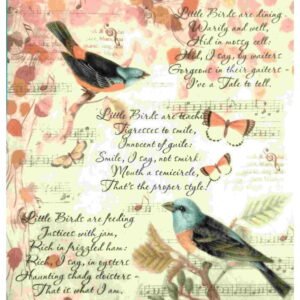 Little Birds are dining
Warily and well,
Hid in mossy cell:
Hid, I say, by waiters
Gorgeous in their gaiters -
I've a Tale to tell.
Little Birds are teaching
Tigresses to smile,
Innocent of guile:
Smile, I say, not smirk
Mouth a semicircle,
That's the proper style!
Little Birds are feeding
Justices with jam,
Rich in frizzled ham:
Rich, I say, in oysters
Haunting shady cloisters -
That is what I am.